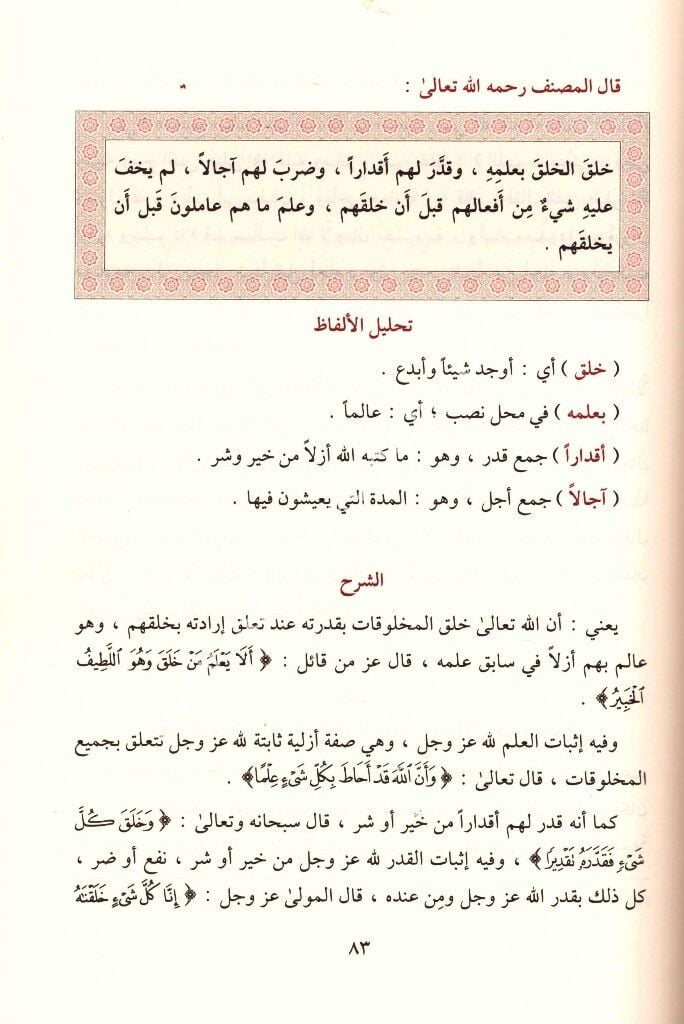 قال المصنف رحمه الله تعالىٰ :
خلقَ الخلقَ بعلمِهِ ، وقدَّرَ لهم أَقداراً ، وضربَ لهم آجالاً ، لم يخفَ
عليهِ شيءٌ مِن أَفعالهم قبلَ أَن خلقَهم ، وعلمَ ما هم عاملونَ قَبل أَن
يخلقَهم .
تحليل الألفاظ
( خلق ) أي : أوجد شيئاً وأبدع .
( بعلمه ) في محل نصب ؛ أي : عالماً .
( أقداراً ) جمع قدر ، وهو : ما كتبه الله أزلاً من خير وشر .
( آجالاً ) جمع أجل ، وهو : المدة التي يعيشون فيها .
الشرح
يعني : أن الله تعالىٰ خلق المخلوقات بقدرته عند تعلق إرادته بخلقهم ، وهو
عالم بهم أزلاً في سابق علمه ، قال عز من قائل : ﴿ أَلَا يَعْلَمُ مَنْ خَلَقَ وَهُوَ ٱللَّطِيفُ
ٱلْخَبِيرُ﴾ .
وفيه إثبات العلم لله عز وجل ، وهي صفة أزلية ثابتة لله عز وجل تتعلق بجميع
المخلوقات ، قال تعالىٰ : ﴿ وَأَنَّ ٱللَّهَ قَدْ أَحَاطَ بِكُلِّ شَىْءٍ عِلْمًا﴾ .
كما أنه قدر لهم أقداراً من خير أو شر ، قال سبحانه وتعالىٰ : ﴿ وَخَلَقَ كُلَّ
شَىْءٍ فَقَدَّرَهُۥ تَقْدِيرًا﴾ ، وفيه إثبات القدر لله عز وجل من خير أو شر ، نفع أو ضر ،
كل ذلك بقدر الله عز وجل ومِن عنده ، قال المولىٰ عز وجل : ﴿ إِنَّا كُلَّ شَىْءٍ خَلَقْنَٰهُ
٨٣